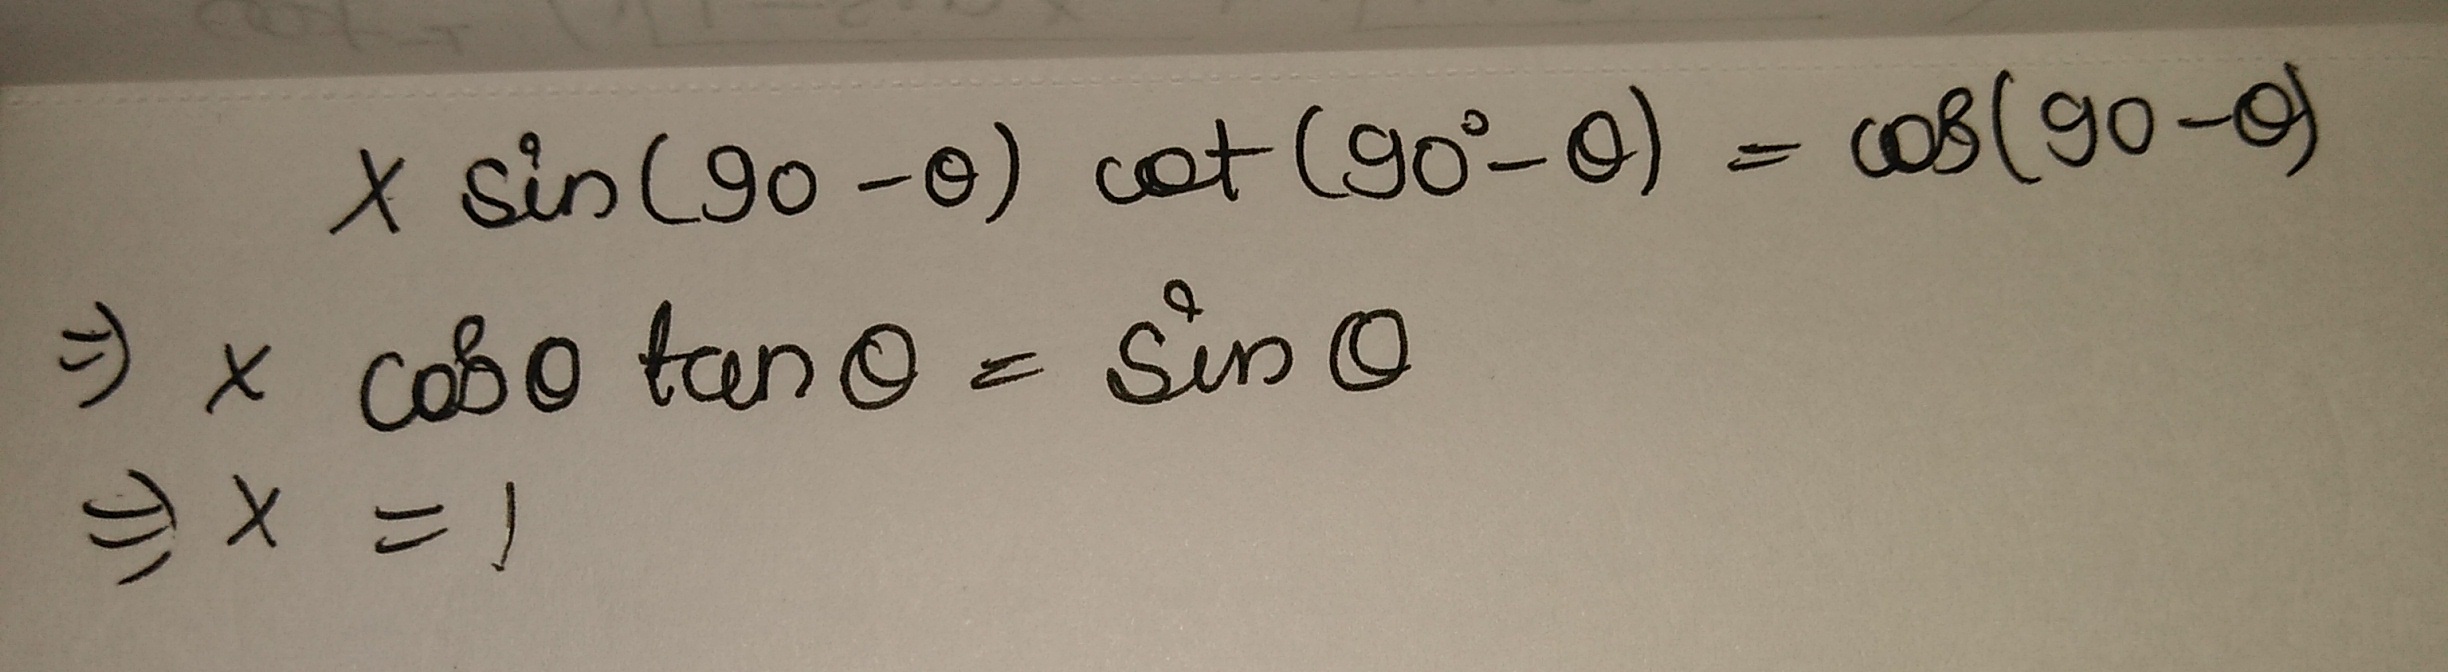 x sin(90-θ) cot(90°-θ) = cos(90-θ)
⇒ x cosθ tanθ = sinθ
⇒ x = 1